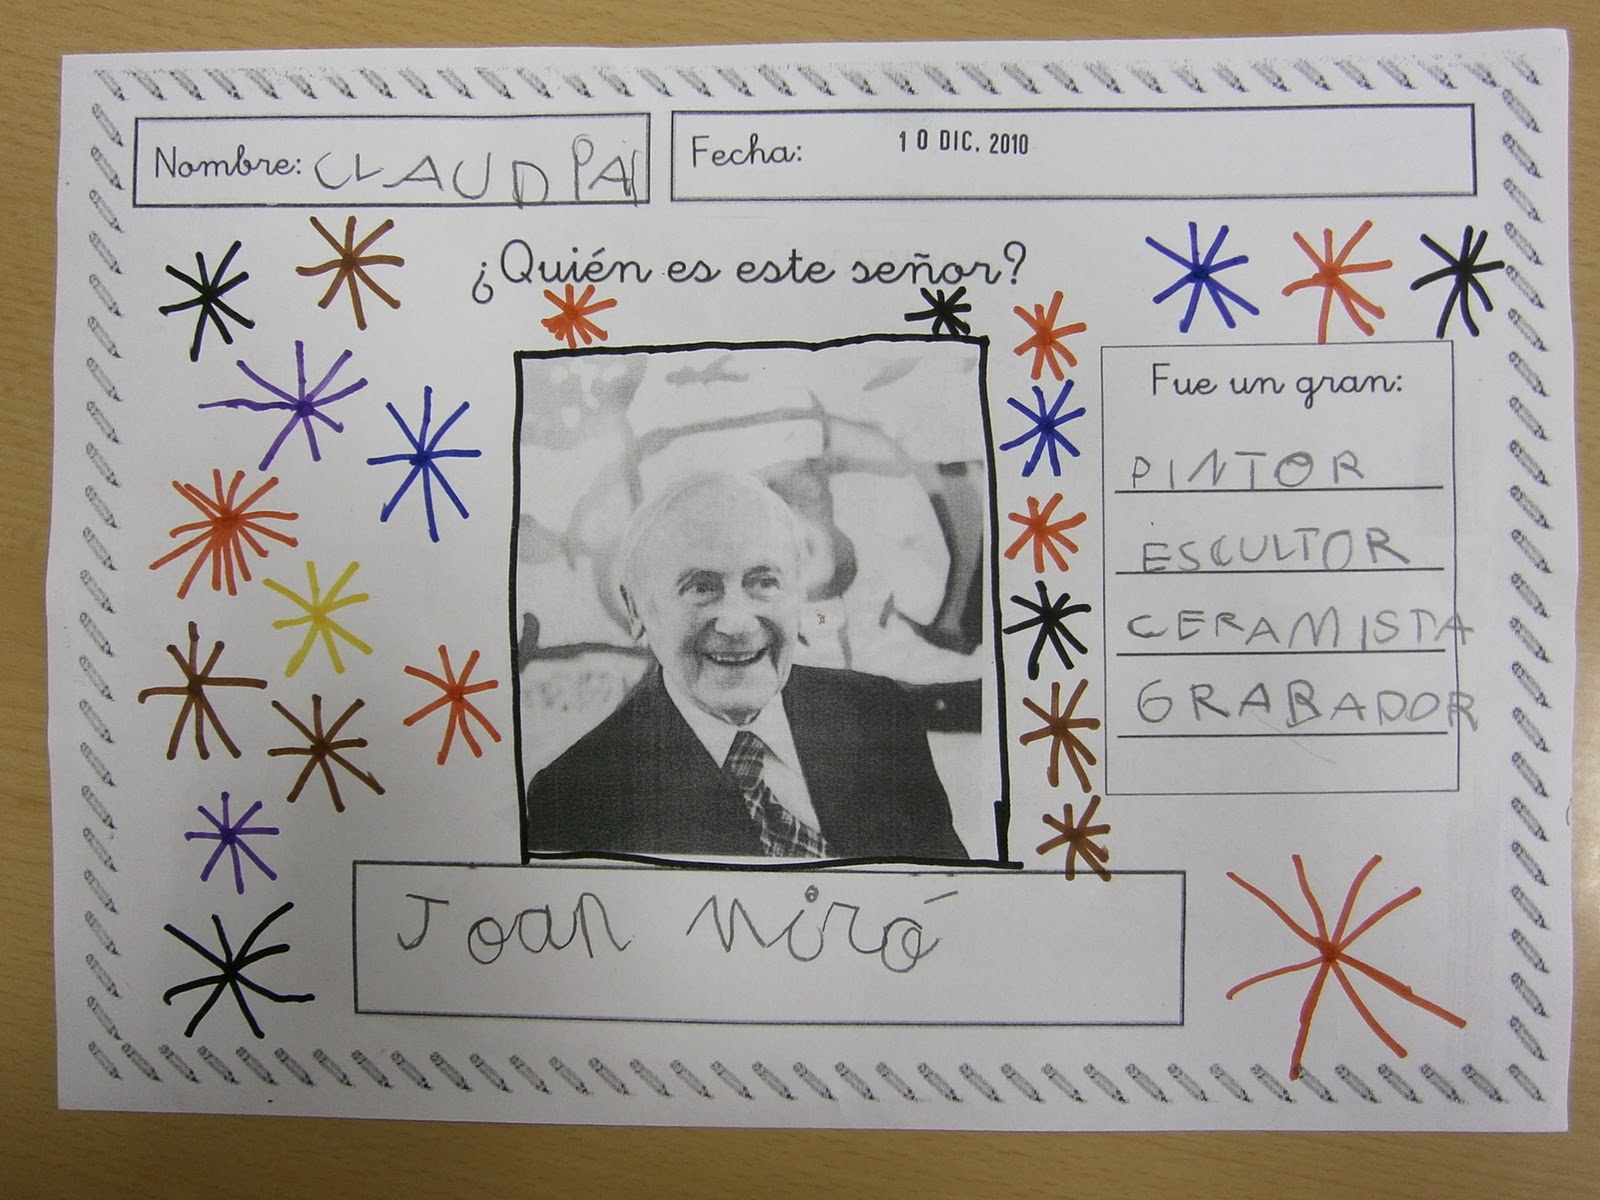 Nombre: CLAUDPA
Fecha: 10 DIC. 2010
¿Quién es este señor?
Fue un gran:
PINTOR
ESCULTOR
CERAMISTA
GRABADOR
Joan Miró